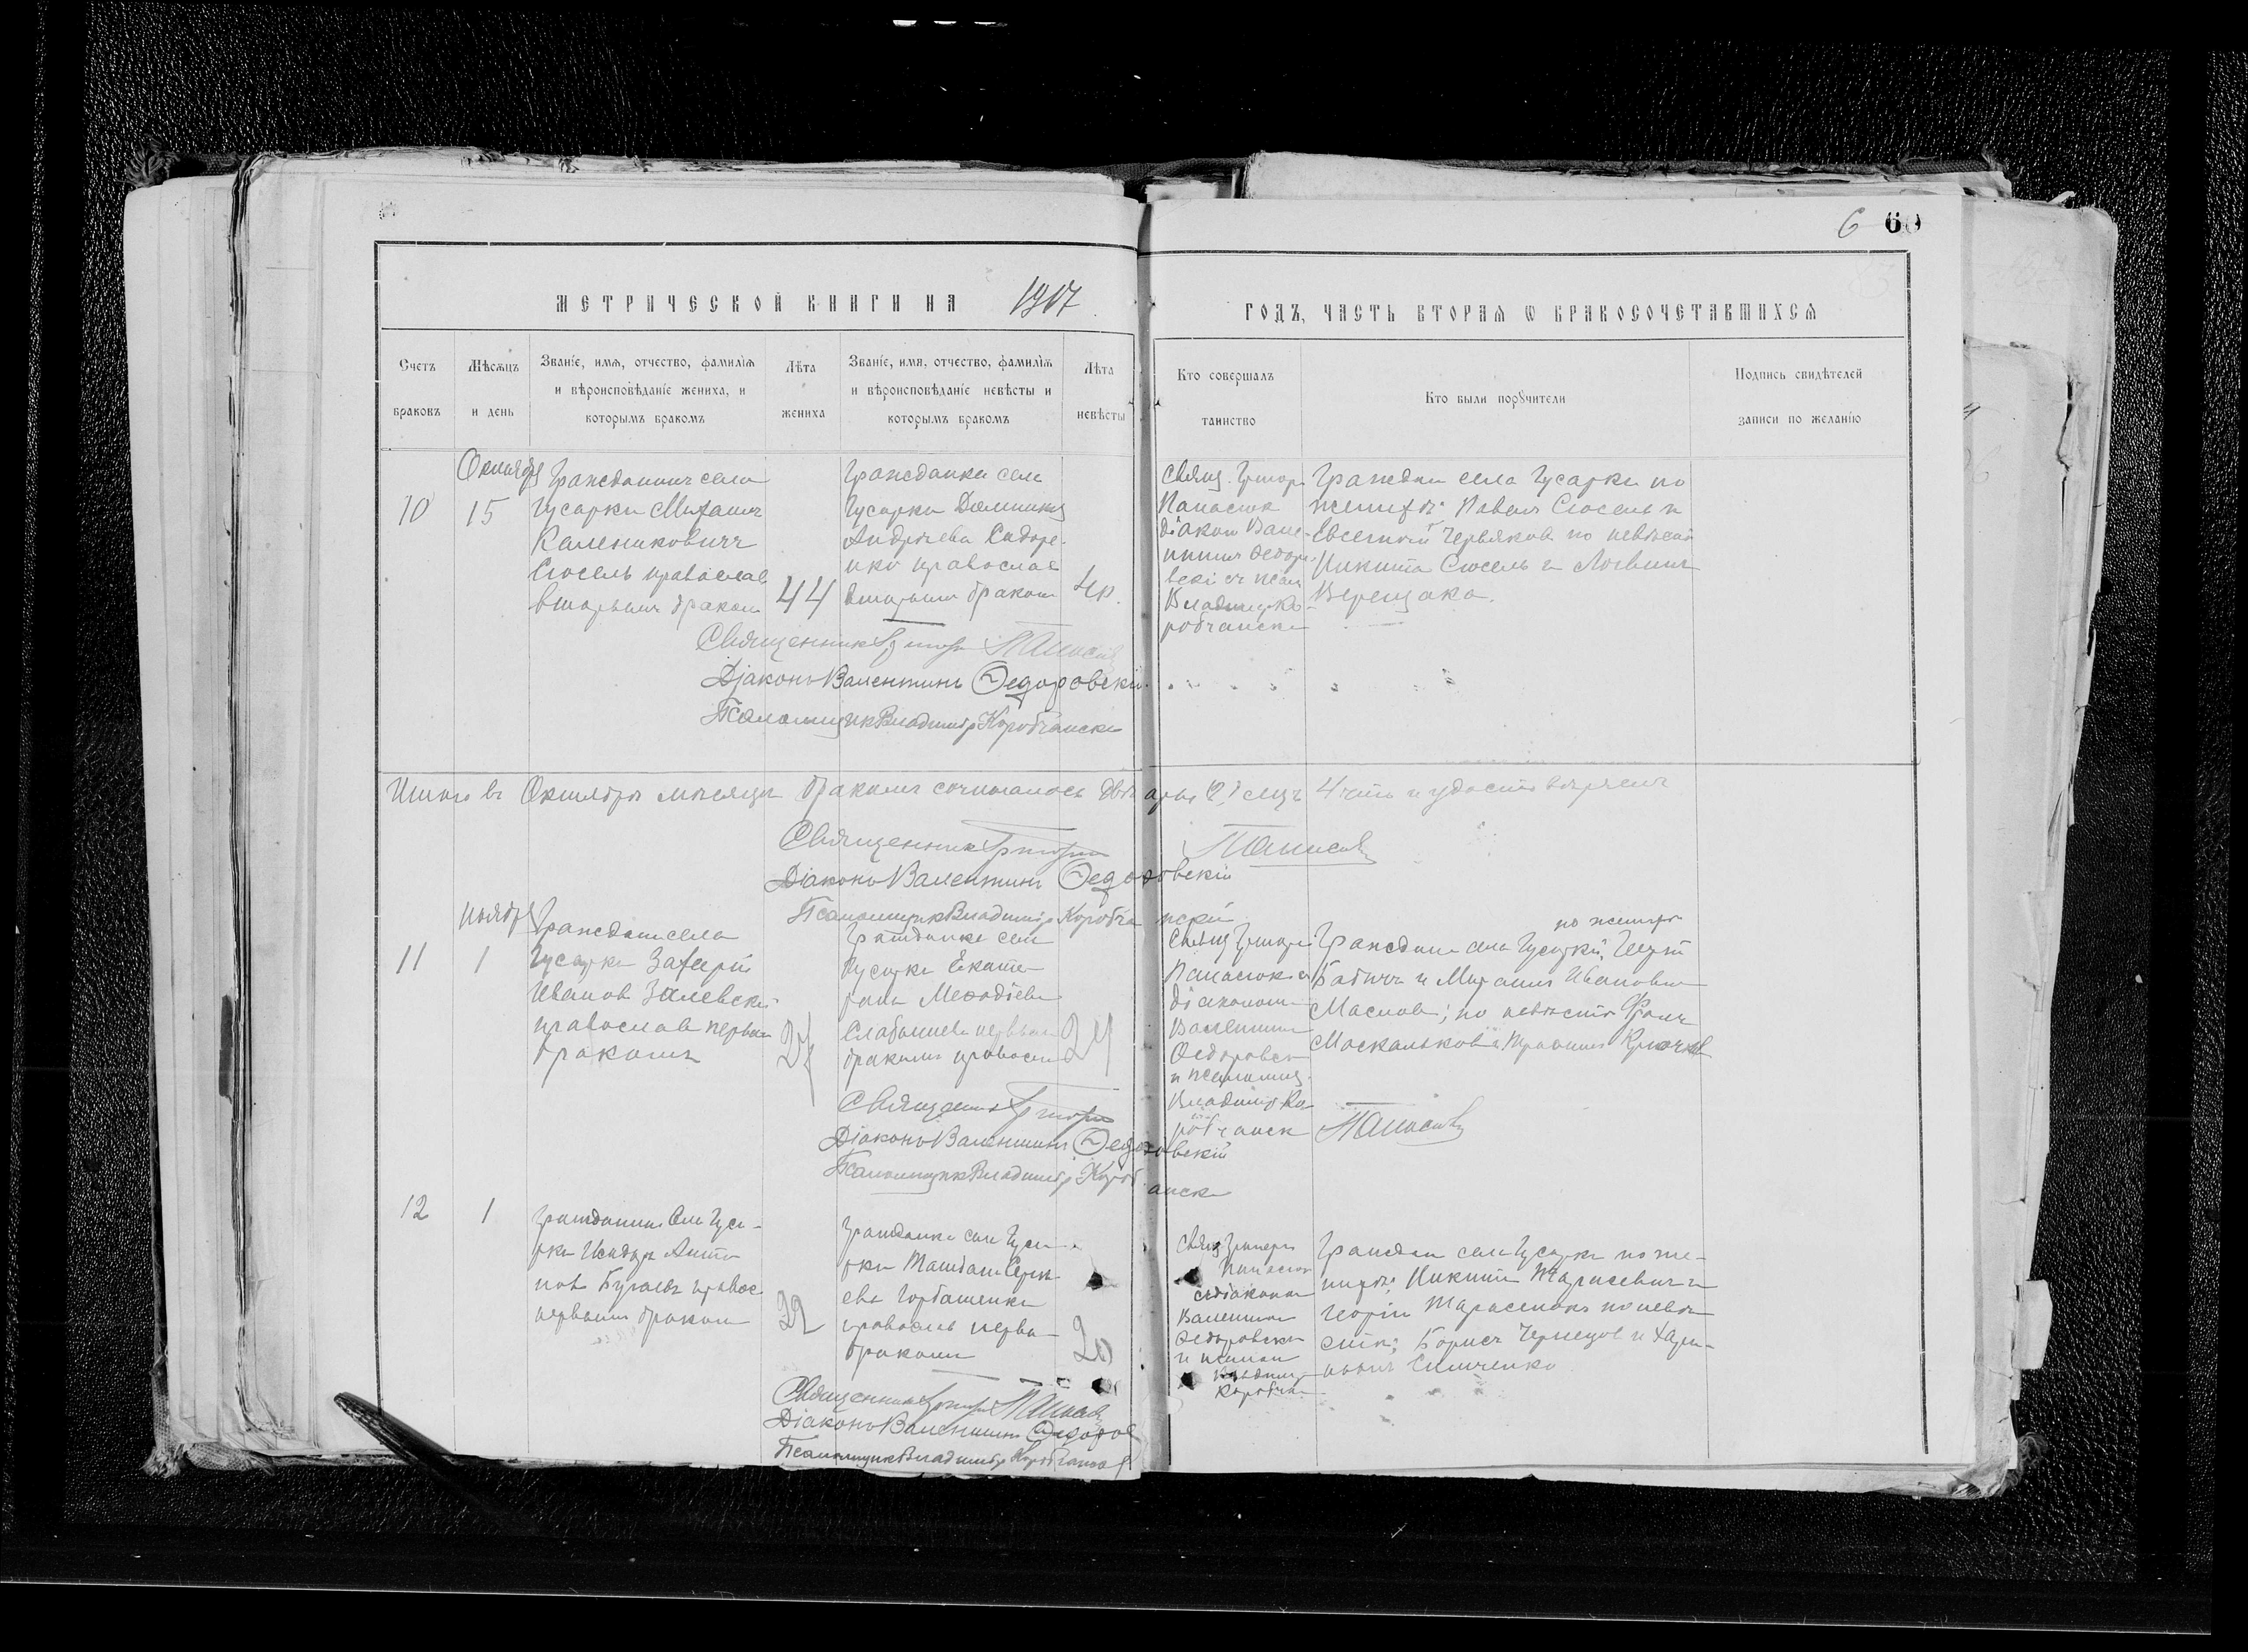 6 60
МЕТРИЧЕСКОЙ КНИГИ НА 1917
ГОДЪ, ЧАСТЬ ВТОРАЯ Ѡ БРАКОСОЧЕТАВШИХСЯ
Счетъ
браковъ
Мѣсяцъ
и день
Званіе, имя, отчество, фамилія
и вѣроисповѣданіе жениха, и
которымъ бракомъ
Лѣта
жениха
Званіе, имя, отчество, фамилія
и вѣроисповѣданіе невѣсты и
которымъ бракомъ
Лѣта
невѣсты
Кто совершалъ
таинство
Кто были порꙋчители
Подпись свидѣтелей
записи по желанію
10
Октября
15
Гражданинъ села
Гусарки Михаилъ
Калениковичъ
Сюсель православ
вторымъ браком
44
Гражданка села
Гусарки Домникия
Андреева Сидоре-
нко православ
вторымъ браком
40.
Свящ. Григор
Панасюк
діакон Вале-
нтин Федоро-
вскі и псал
Владимр Ко-
робчански
Граждан села Гусарки по
женихѣ: Павел Сюсель и
Евсегній Червяков по невѣстѣ
Никита Сюсель и Логвин
Верещака.
Священник Григорій Панасюк
Діаконъ Валентинъ Ѳедоровскій
Псаломщик Владиміръ Коробчански
Итого въ Октябрѣ мѣсяцѣ бракомъ сочеталось двѣ пары (2) лицъ 4 что и удостовѣряемъ
Священник Григорій Панасюк
Діаконъ Валентинъ Ѳедоровскій
Псаломщик Владиміръ Коробчанскій
11
Ноября
1
Граждан села
Гусарки Захарій
Иванов Залевскі
православ первым
бракомъ
27
Гражданка села
Гусарки Екате-
рина Меѳодіева
первым
бракомъ православ
24
Свящ Григори
Панасюк с
діаконом
Валентин
Ѳедоровск
и псаломщ.
Владимір Ко-
робчанск
по жених
Граждан села Гусарки,
Бабичъ и Михаилъ Иванович
Маслов; по невѣстѣ
Москальков и Трофим Крючков
Священник Григорій Панасюк
Діаконъ Валентинъ Ѳедоровскій
Псаломщик Владиміръ Коробчанск
12
1
Гражданин села Гуса-
рки Исидор Анто-
нов Бугаевъ правос
первым браком
22
Гражданка села Гуса-
рки Серге-
ева Горбатенко
православ первы
бракомъ
20
Свящ Григори
Панасюк
съ діаконом
Валентин
Ѳедоровски
и псалом
Владим
Коробча
Граждан села Гусарки по же-
нихѣ: Никита Тарасевич и
Георгій Тарасенко по невѣ-
стѣ; Борисъ Чернецов и Хари-
Симченко
Священник Григорій Панасюк
Діаконъ Валентинъ Ѳедоров
Псаломщик Владиміръ Коробчанск